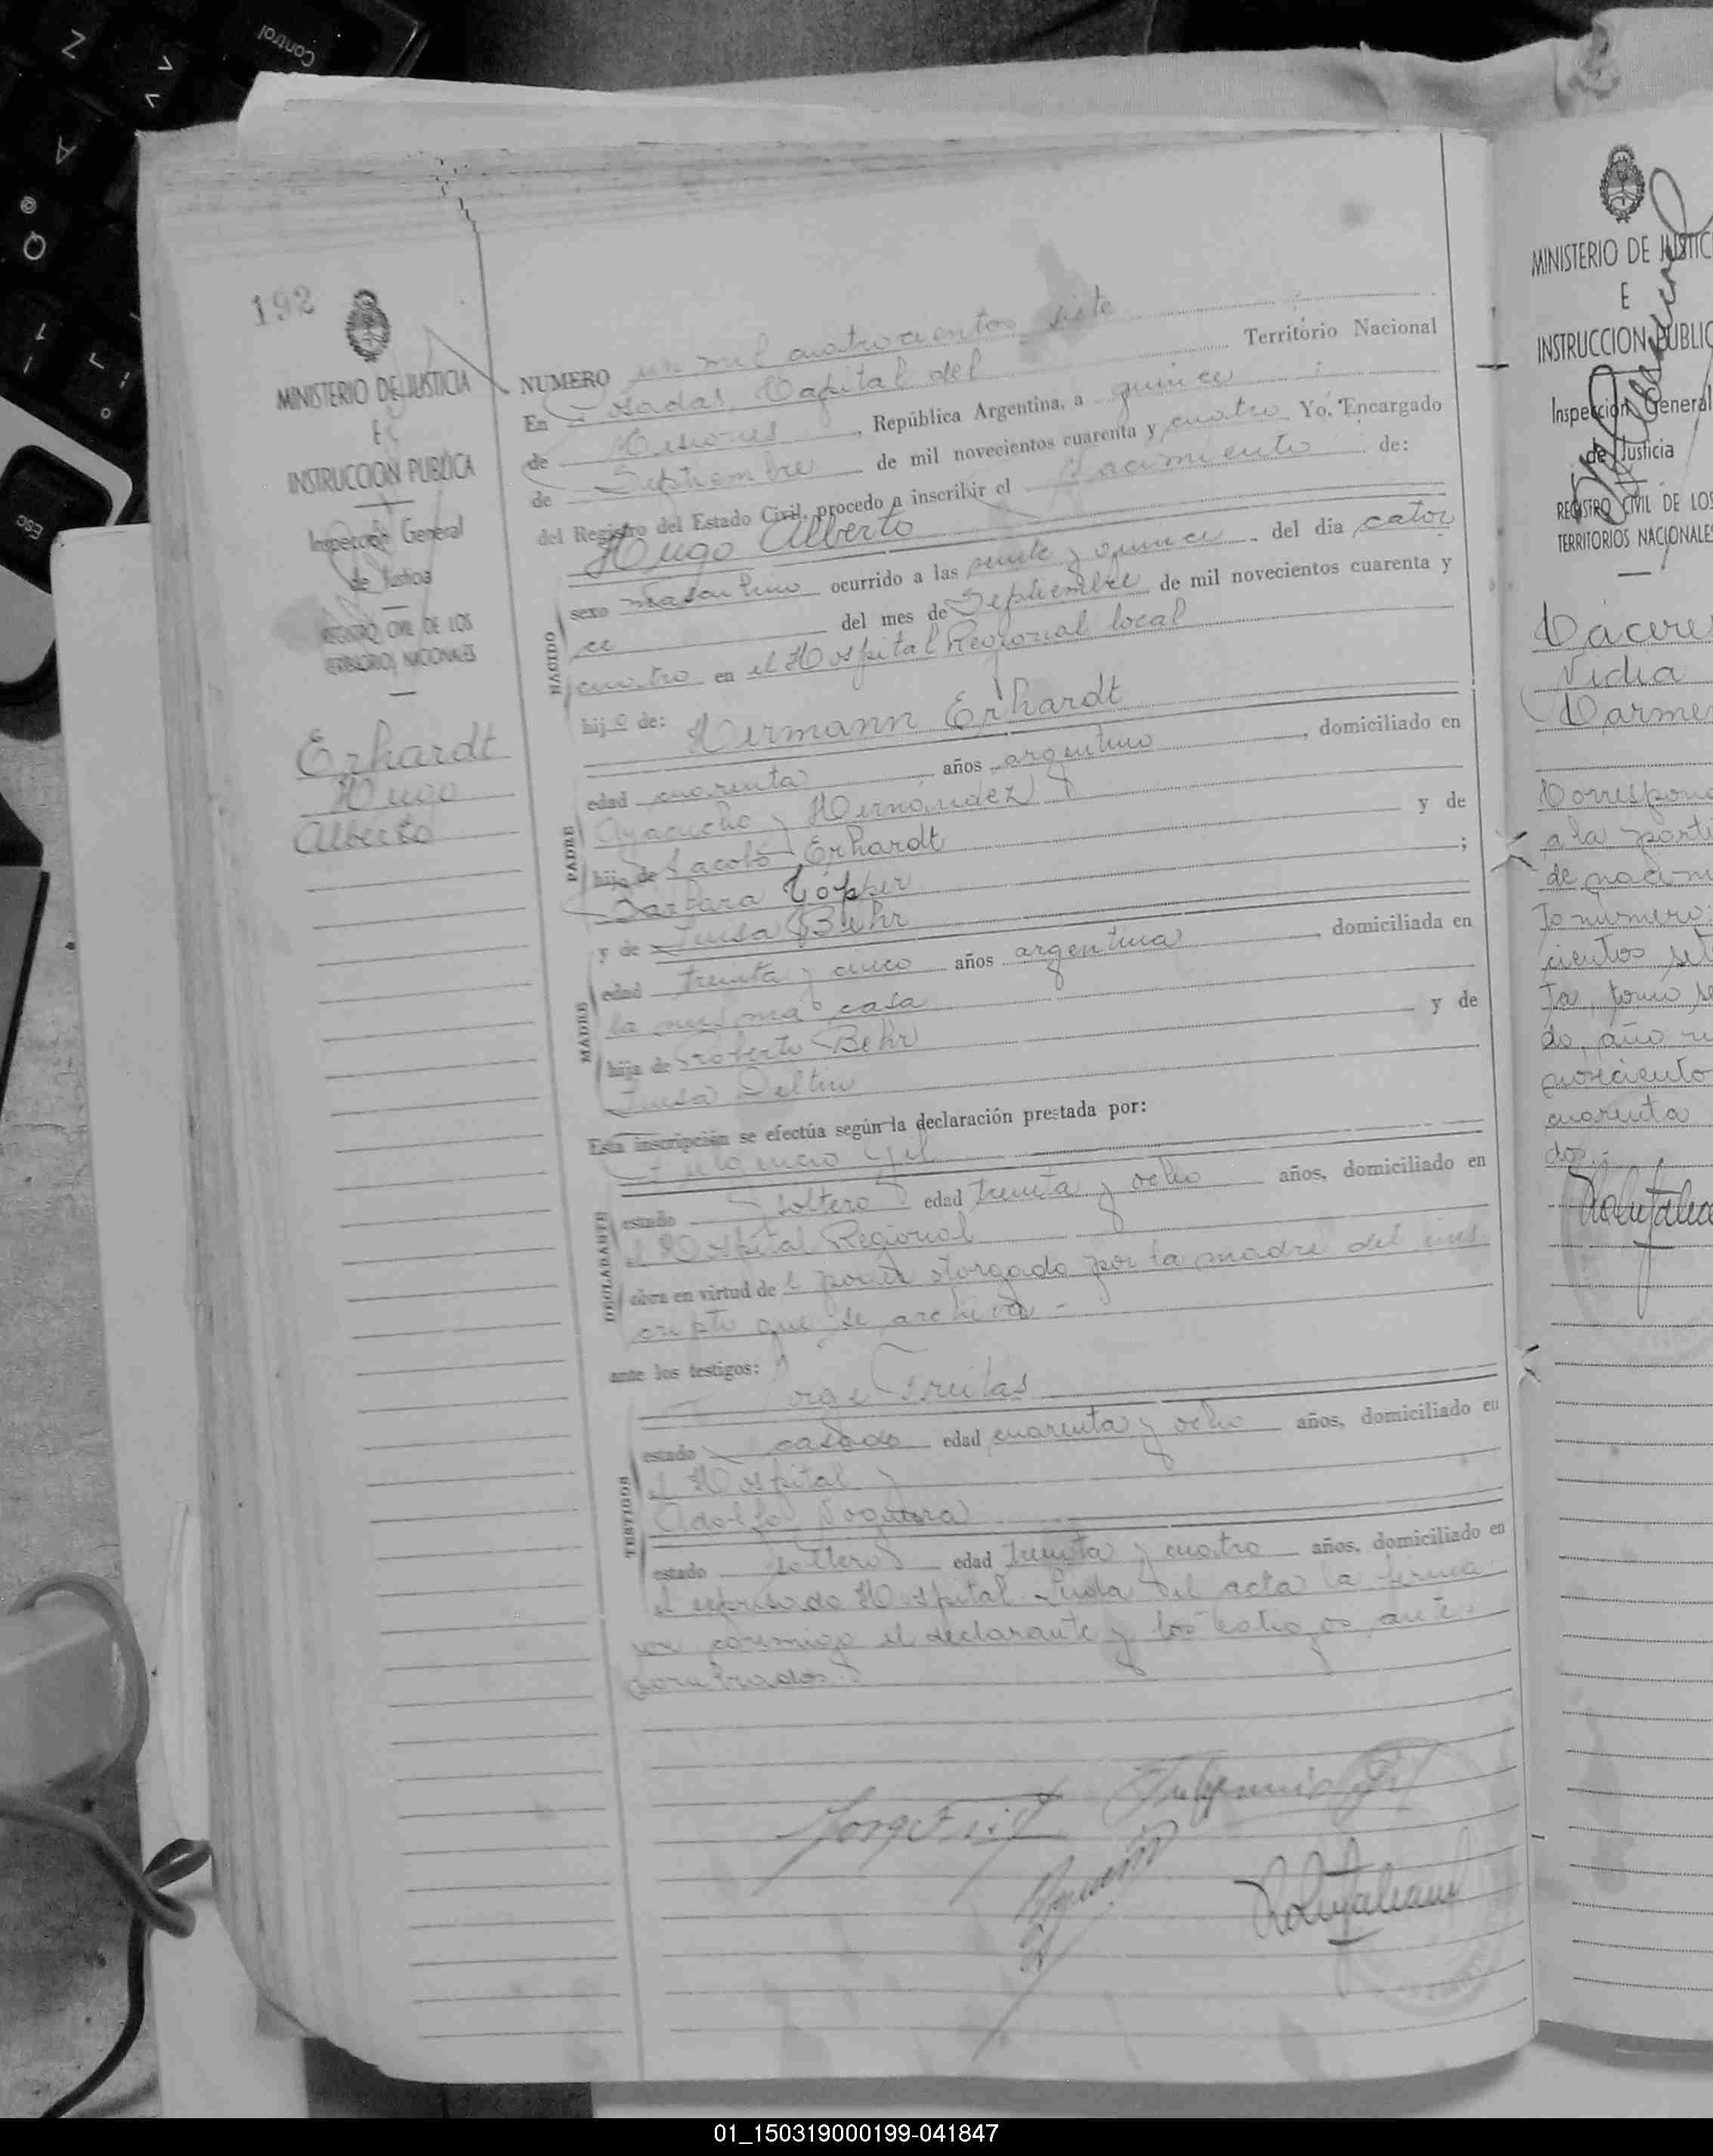 Control
Z
A
Q
ESC
192
MINISTERIO DE JUSTICIA
E
INSTRUCCION PUBLICA
Inspección General
de Justicia
REGISTRO CIVIL DE LOS
TERRITORIOS NACIONALES
Erhardt
Hugo
Alberto
NUMERO un mil cuatrocientos siete
En Posadas, Capital del Territorio Nacional
de Misiones, República Argentina, a quince
de Septiembre de mil novecientos cuarenta y cuatro Yo, Encargado
del Registro del Estado Civil, procedo a inscribir el nacimiento de:
Hugo Alberto
NACIDO
sexo masculino ocurrido a las veinte y quince del día cator
ce del mes de Septiembre de mil novecientos cuarenta y
cuatro en el Hospital Regional local
hijo de: Hermann Erhardt
PADRE
edad cuarenta años argentino, domiciliado en
Ayacucho y Hernández
hijo de Jacobo Erhardt y de
Bárbara Töpper ;
y de Luisa Behr
MADRE
edad treinta y cinco años argentina, domiciliada en
la misma casa
hija de Roberto Behr y de
Luisa
Esta inscripción se efectúa según la declaración prestada por:
Fulgencio Gil
DECLARANTE
estado soltero edad treinta y ocho años, domiciliado en
el Hospital Regional
obra en virtud de l poder otorgado por la madre del ins
cripto que se archiva.-
ante los testigos:
Jorge Freitas
TESTIGOS
estado casado edad cuarenta y ocho años, domiciliado en
el Hospital y
Adolfo Noguera
estado soltero edad treinta y cuatro años, domiciliado en
el expresado Hospital. Leida el acta la firma
on conmigo el declarante y los testigos ante
nombrados.
Fulgencio Gil
MINISTERIO DE JUSTIC
E
INSTRUCCION PUBLIC
Inspección General
de Justicia
REGISTRO CIVIL DE LOS
TERRITORIOS NACIONALES
Cáceres
Nidia
Carme
Correspon
a la parti
de nacim
to número
cientos set
ta, tomo se
do, año
novecientos
cuarenta
dos.-
01_150319000199-041847